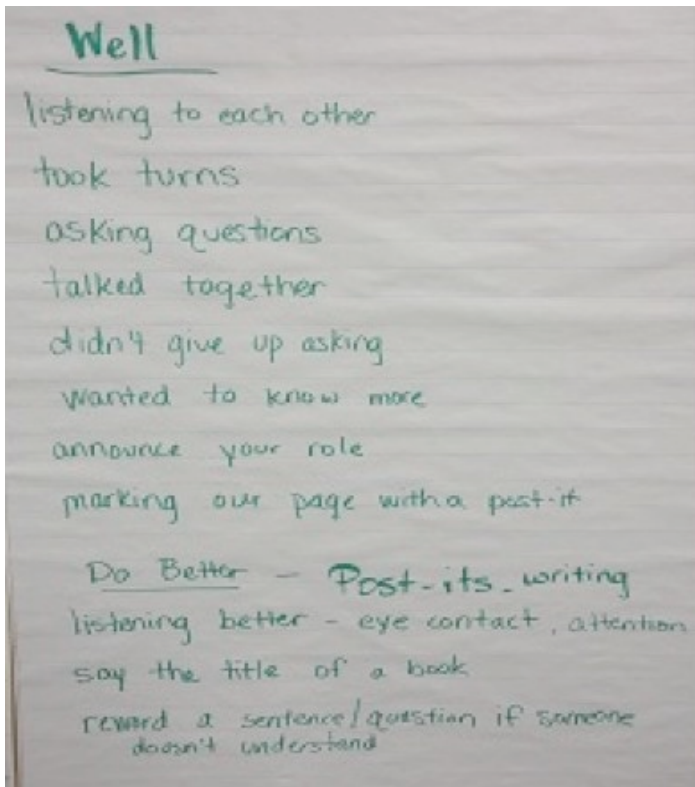 Well
listening to each other
took turns
asking questions
talked together
didn't give up asking
wanted to know more
announce your role
marking our page with a post-it
Do Better - Post-its - writing
listening better - eye contact, attention
say the title of a book
reword a sentence/question if someone
doesn't understand